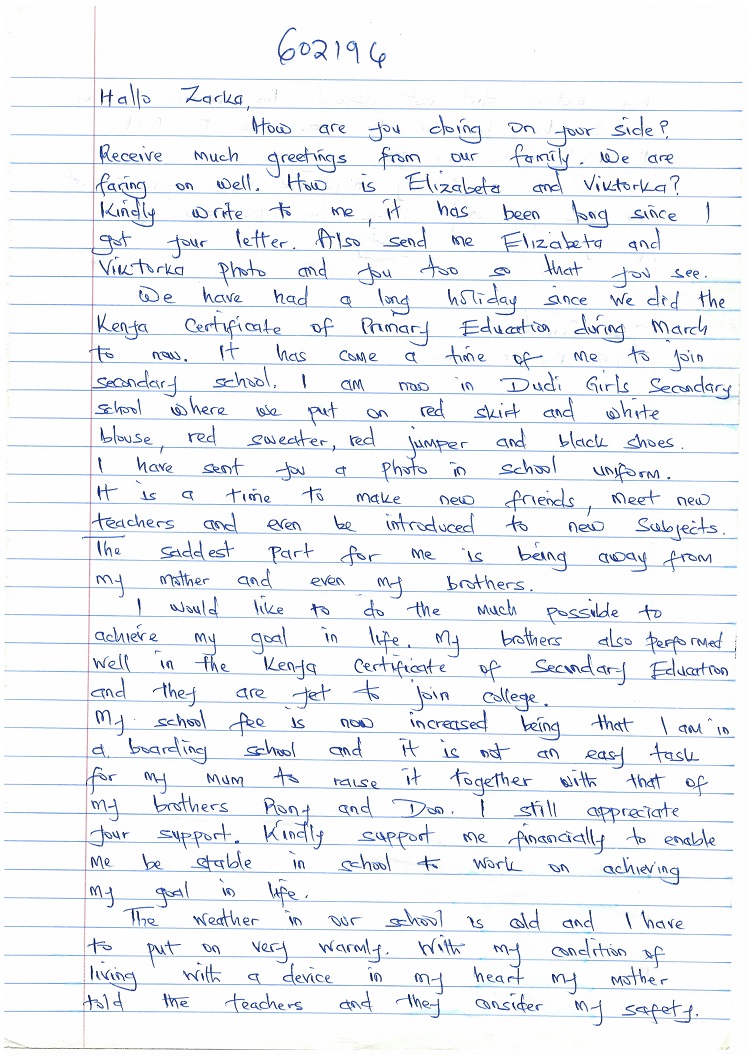 602196
Hallo Zarka,
How are you doing on your side?
Receive much greetings from our family. We are
faring on well. How is Elizabeta and Viktorka?
Kindly write to me, it has been long since I
got your letter. Also send me Elizabeta and
Viktorka photo and you too so that you see.
We have had a long holiday since we did the
Kenya Certificate of Primary Education during March
to now. It has come a time of me to join
secondary school. I am now in Dudi Girls Secondary
school where we put on red skirt and white
blouse, red sweater, red jumper and black shoes.
I have sent you a photo in school uniform.
It is a time to make new friends, meet new
teachers and even be introduced to new subjects.
The saddest part for me is being away from
my mother and even my brothers.
I would like to do the much possible to
achieve my goal in life. My brothers also performed
well in the Kenya Certificate of Secondary Education
and they are yet to join college.
My school fee is now increased being that I am in
a boarding school and it is not an easy task
for my mum to raise it together with that of
my brothers Rony and Don. I still appreciate
your support. Kindly support me financially to enable
me be stable in school to work on achieving
my goal in life.
The weather in our school is cold and I have
to put on very warmly. With my condition of
living with a device in my heart my mother
told the teachers and they consider my safety.